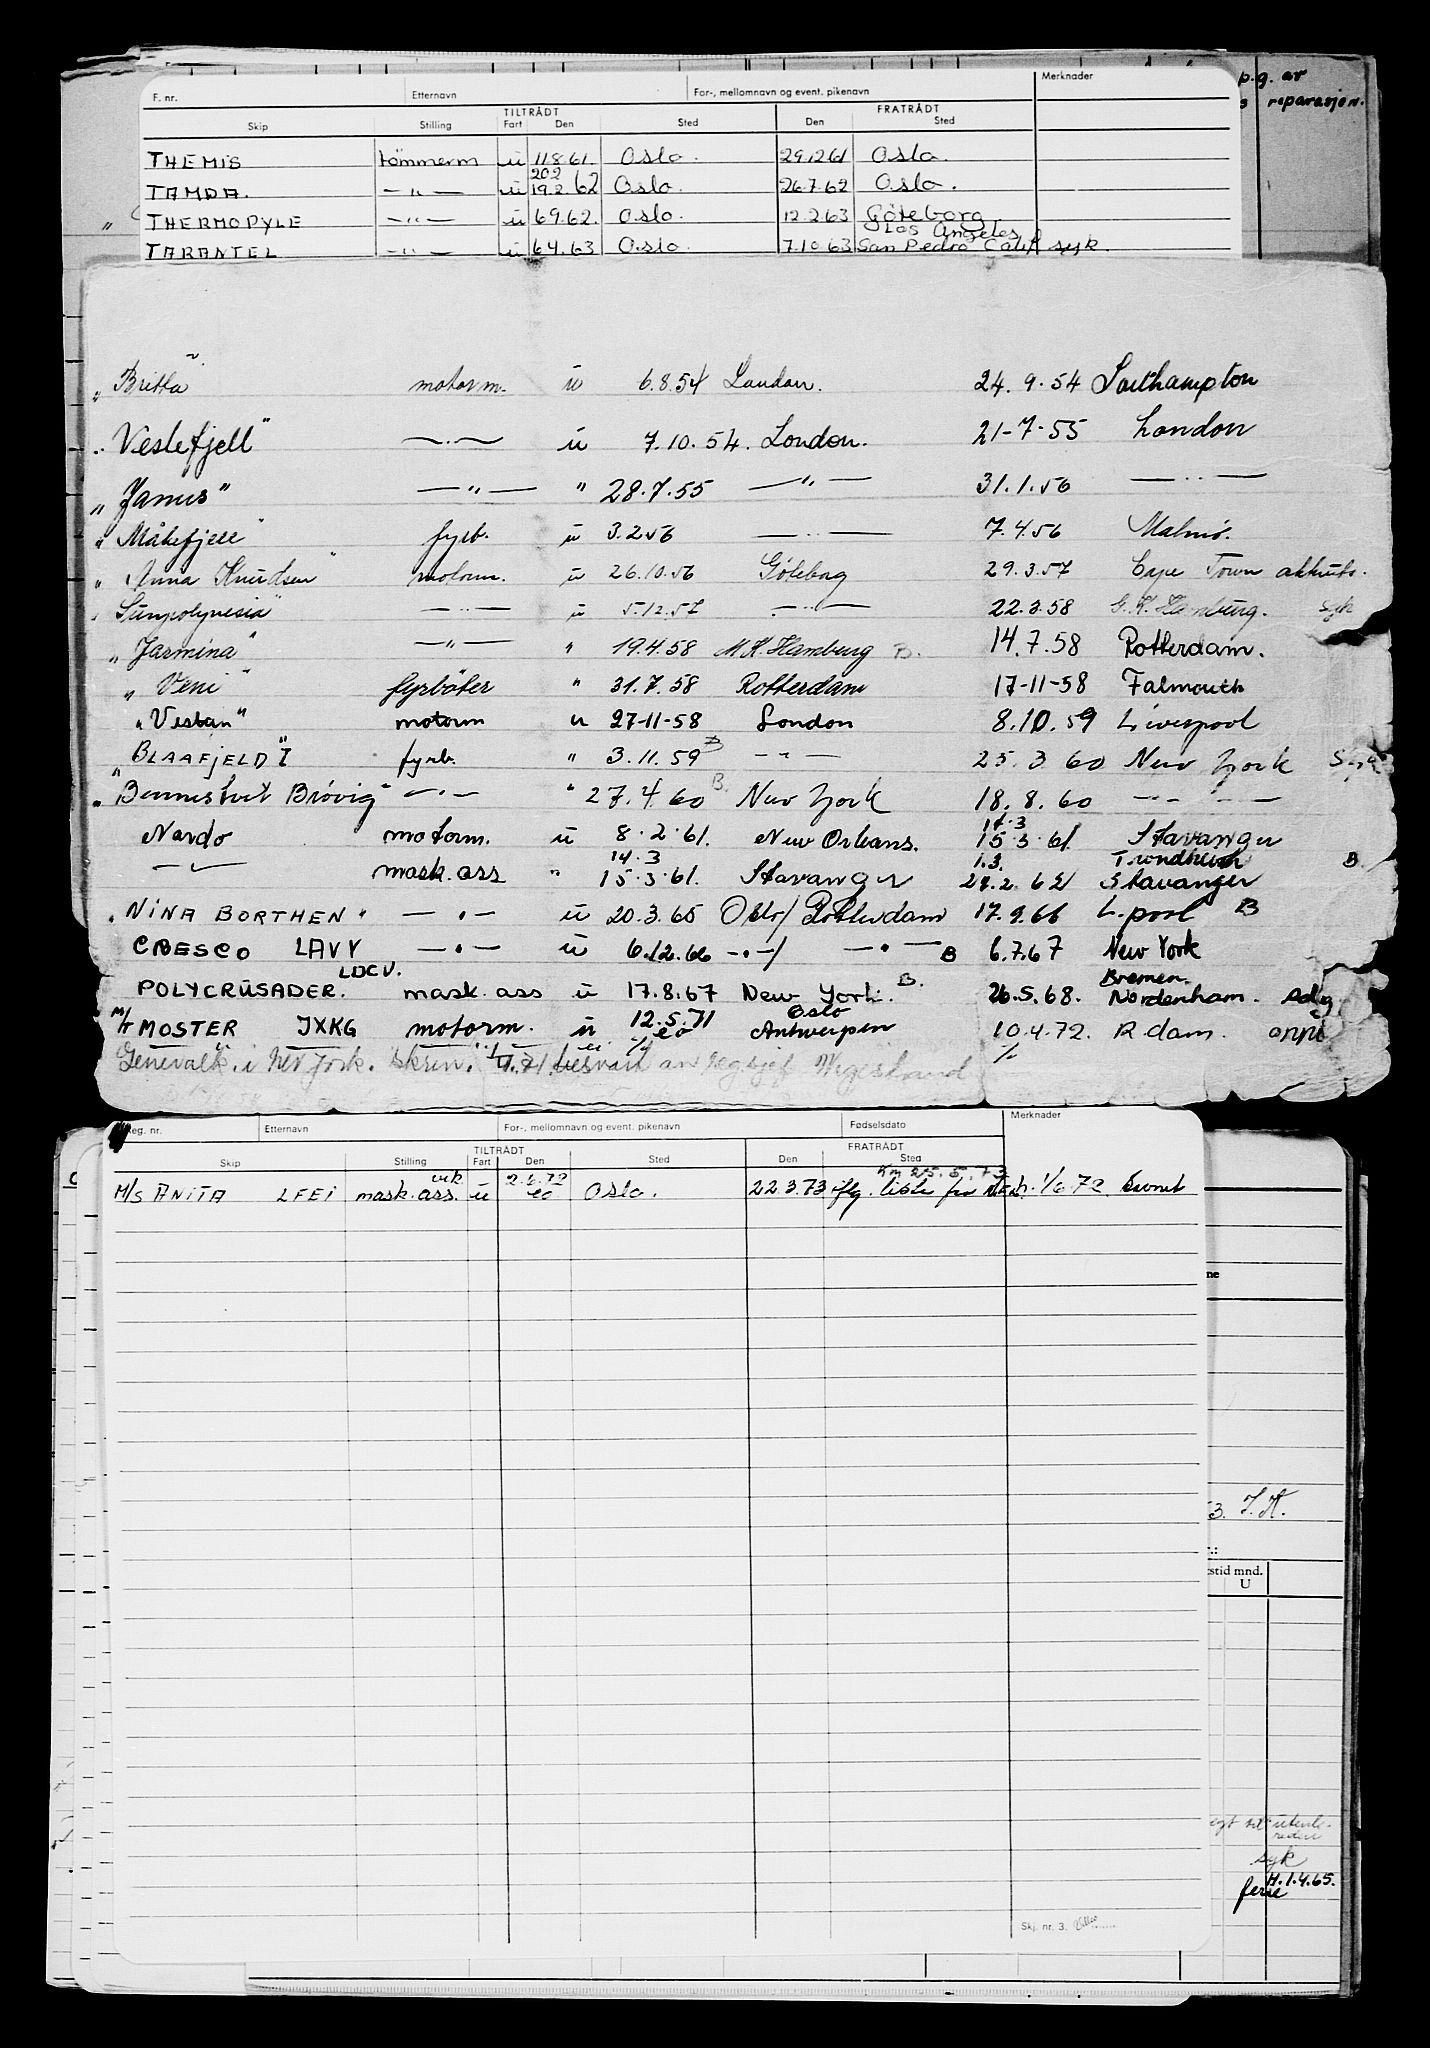 p.g. av
reparasjon.
F. nr. Etternavn For-, mellomnavn og event. pikenavn Merknader
TILTRÅDT FRATRÅDT
Skip Stilling Fart Den Sted Den Sted
THEMIS tömmerm ü 11.8.61. Oslo. 29.12.61 Oslo.
20.2
TAMPA. — " — ü 19.2.62 Oslo. 26.7.62 Oslo.
" THERMOPYLE — " — ü 6.9.62. Oslo. 12.2.63 Göteborg
Los Angeles
TARANTEL — " — ü 6.4.63 Oslo. 7.10.63 San Pedro Calif syk.
" Britta motorm. ü 6.8.54 London. 24.9.54 Southampton
" Veslefjell" — " — ü 7.10.54. London. 21-7-55 London
" Janus" — " — " 28.7.55 — " — 31.1.56 — " —
" Måkefjell" fyrb. ü 3.2.56 — " — 7.4.56 Malmö.
" Anna Knudsen" motorm. ü 26.10.56 Göteborg 29.3.57 Cape Town
" Sunpolynesia" — " — ü 5.12.57 — " — 22.3.58 G.K. Hamburg. syk
" Jasmina" — " — " 19.4.58 M.K. Hamburg B. 14.7.58 Rotterdam.
" Veni" fyrböter " 31.7.58 Rotterdam 17-11-58 Falmouth
" Vestan" motorm ü 27-11-58 London 8.10.59 Liverpool
" BLAAFJELD" I fyrb. " 3.11.59 B — " — 25.3.60 New York
" Bennestvet Brövig" — " — " 27.4.60 B. New York 18.8.60 — " —
Nardo motorm. ü 8.2.61. New Orleans. 14.3 15.3.61. Stavanger
— " — mask.ass " 14.3 15.3.61. Stavanger 1.3. 28.2.62 Trondheim Stavanger B.
" NINA BORTHEN " — " — ü 20.3.65 Oslo/ Rotterdam 17.9.66 L.pool B
CRESCO LAVY — " — ü 6.12.66 — " —/ — " — B 6.7.67 New York
LDCV. Bremen.
POLYCRUSADER. mask.ass ü 17.8.67 New York. B. 26.5.68. Nordenham.
Oslo
M/T MOSTER JXKG motorm. ü 12.5.71 eo Antwerpen 10.4.72. R dam.
Generalk. i New York.
Reg. nr. Etternavn For-, mellomnavn og event. pikenavn Fødselsdato Merknader
TILTRÅDT FRATRÅDT
Skip Stilling Fart Den Sted Den Sted
vik 2.6.72 Km 25.5.73
M/S ANITA LFEI mask.ass. ü eo Oslo. 22.3.73 flg. liste fra 1/6.72
ne
53. J.K.
tstid mnd.
U
syk
H.1.4.65.
ferie
Skj. nr. 3.